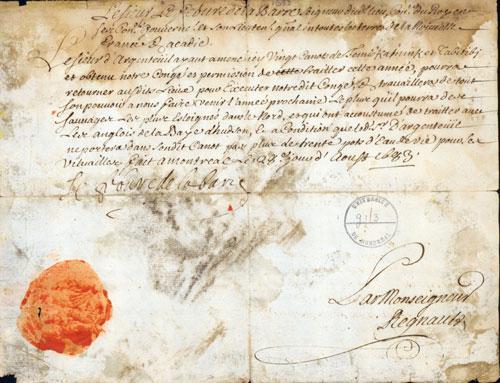 Le sieur Le febure de la Barre Seigneur dud. lieu, Con.er du Roy en
ses Con.ls Gouverneur et son Lieuten.t gnal en toutes les terres de la Nouvelle
France et Acadie
Le sieur d'Argenteuil ayant amené icy Vingt Canots de
et obtenu notre Congé et permission de traitter cette année, pourra
retourner ausdits Lieux pour Executer notredit Congé et travaillera de tout
son pouvoir a nous faire venir l'année prochaine Le plus qu'il pourra de
Sauvages Les plus Esloignés dans le Nord, et qui ont acoustumé de traitter avec
Les anglois de la Baye d'hudson, Et a Condition que led. sr. d'argenteüil
ne portera dans sondit Canot pas plus de trente pots d'Eau de vie pour ses
Victuailles fait a Montreal Le 28 Jour d'Aoust 1683
le febure de la barre
UNIVERSITÉ
DE MONTRÉAL
Par Monseigneur
Regnault